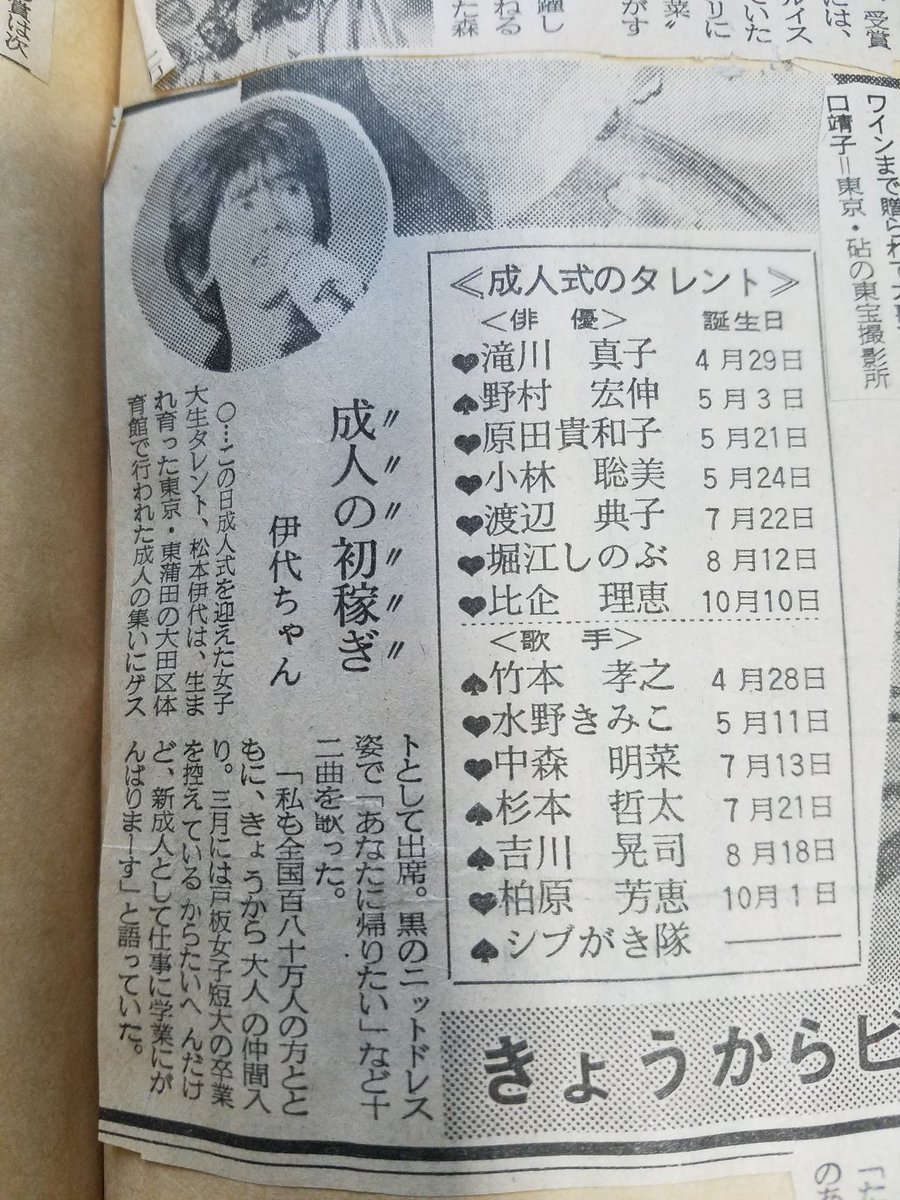 賞は次
躍し
ねる
がす
た森
受賞
には、
ルイス
ていた
リに
菜〟
ワインまで贈られて大
口靖子＝東京・砧の東宝撮影所
≪成人式のタレント≫
＜俳　優＞　誕生日
♥滝川　真子　4月29日
♠野村　宏伸　5月3日
♥原田貴和子　5月21日
♥小林　聡美　5月24日
♥渡辺　典子　7月22日
♥堀江しのぶ　8月12日
♥比企　理恵　10月10日
＜歌　手＞
♠竹本　孝之　4月28日
♥水野きみこ　5月11日
♥中森　明菜　7月13日
♠杉本　哲太　7月21日
♠吉川　晃司　8月18日
♥柏原　芳恵　10月1日
♠シブがき隊　――――
成人の初稼ぎ
伊代ちゃん
○…この日成人式を迎えた女子
大生タレント、松本伊代は、生ま
れ育った東京・東蒲田の大田区体
育館で行われた成人の集いにゲス
トとして出席。黒のニットドレス
姿で「あなたに帰りたい」など十
二曲を歌った。
「私も全国百八十万人の方とと
もに、きょうから大人の仲間入
り。三月には戸板女子短大の卒業
を控えているからたいへんだけ
ど、新成人として仕事に学業にが
んばりまーす」と語っていた。
きょうからビ